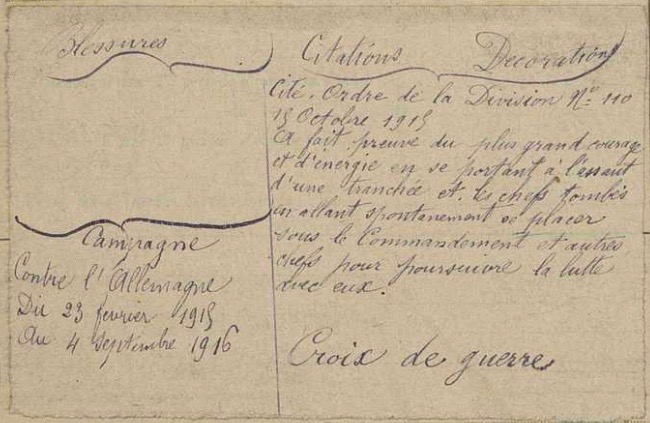 Blessures
Campagne
Contre l'Allemagne
Du 23 février 1915
Au 4 septembre 1916
Citations Decorations
Cité. Ordre de la Division No 110
15 Octobre 1915
A fait preuve du plus grand courage
et d'énergie en se portant à l'assaut
d'une tranchée et, les chefs tombés
en allant spontanement se placer
sous le Commandement et autres
chefs pour poursuivre la lutte
avec eux.
Croix de guerre